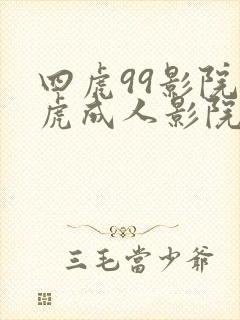 四虎99影院
虎成人影院
三毛當少爺